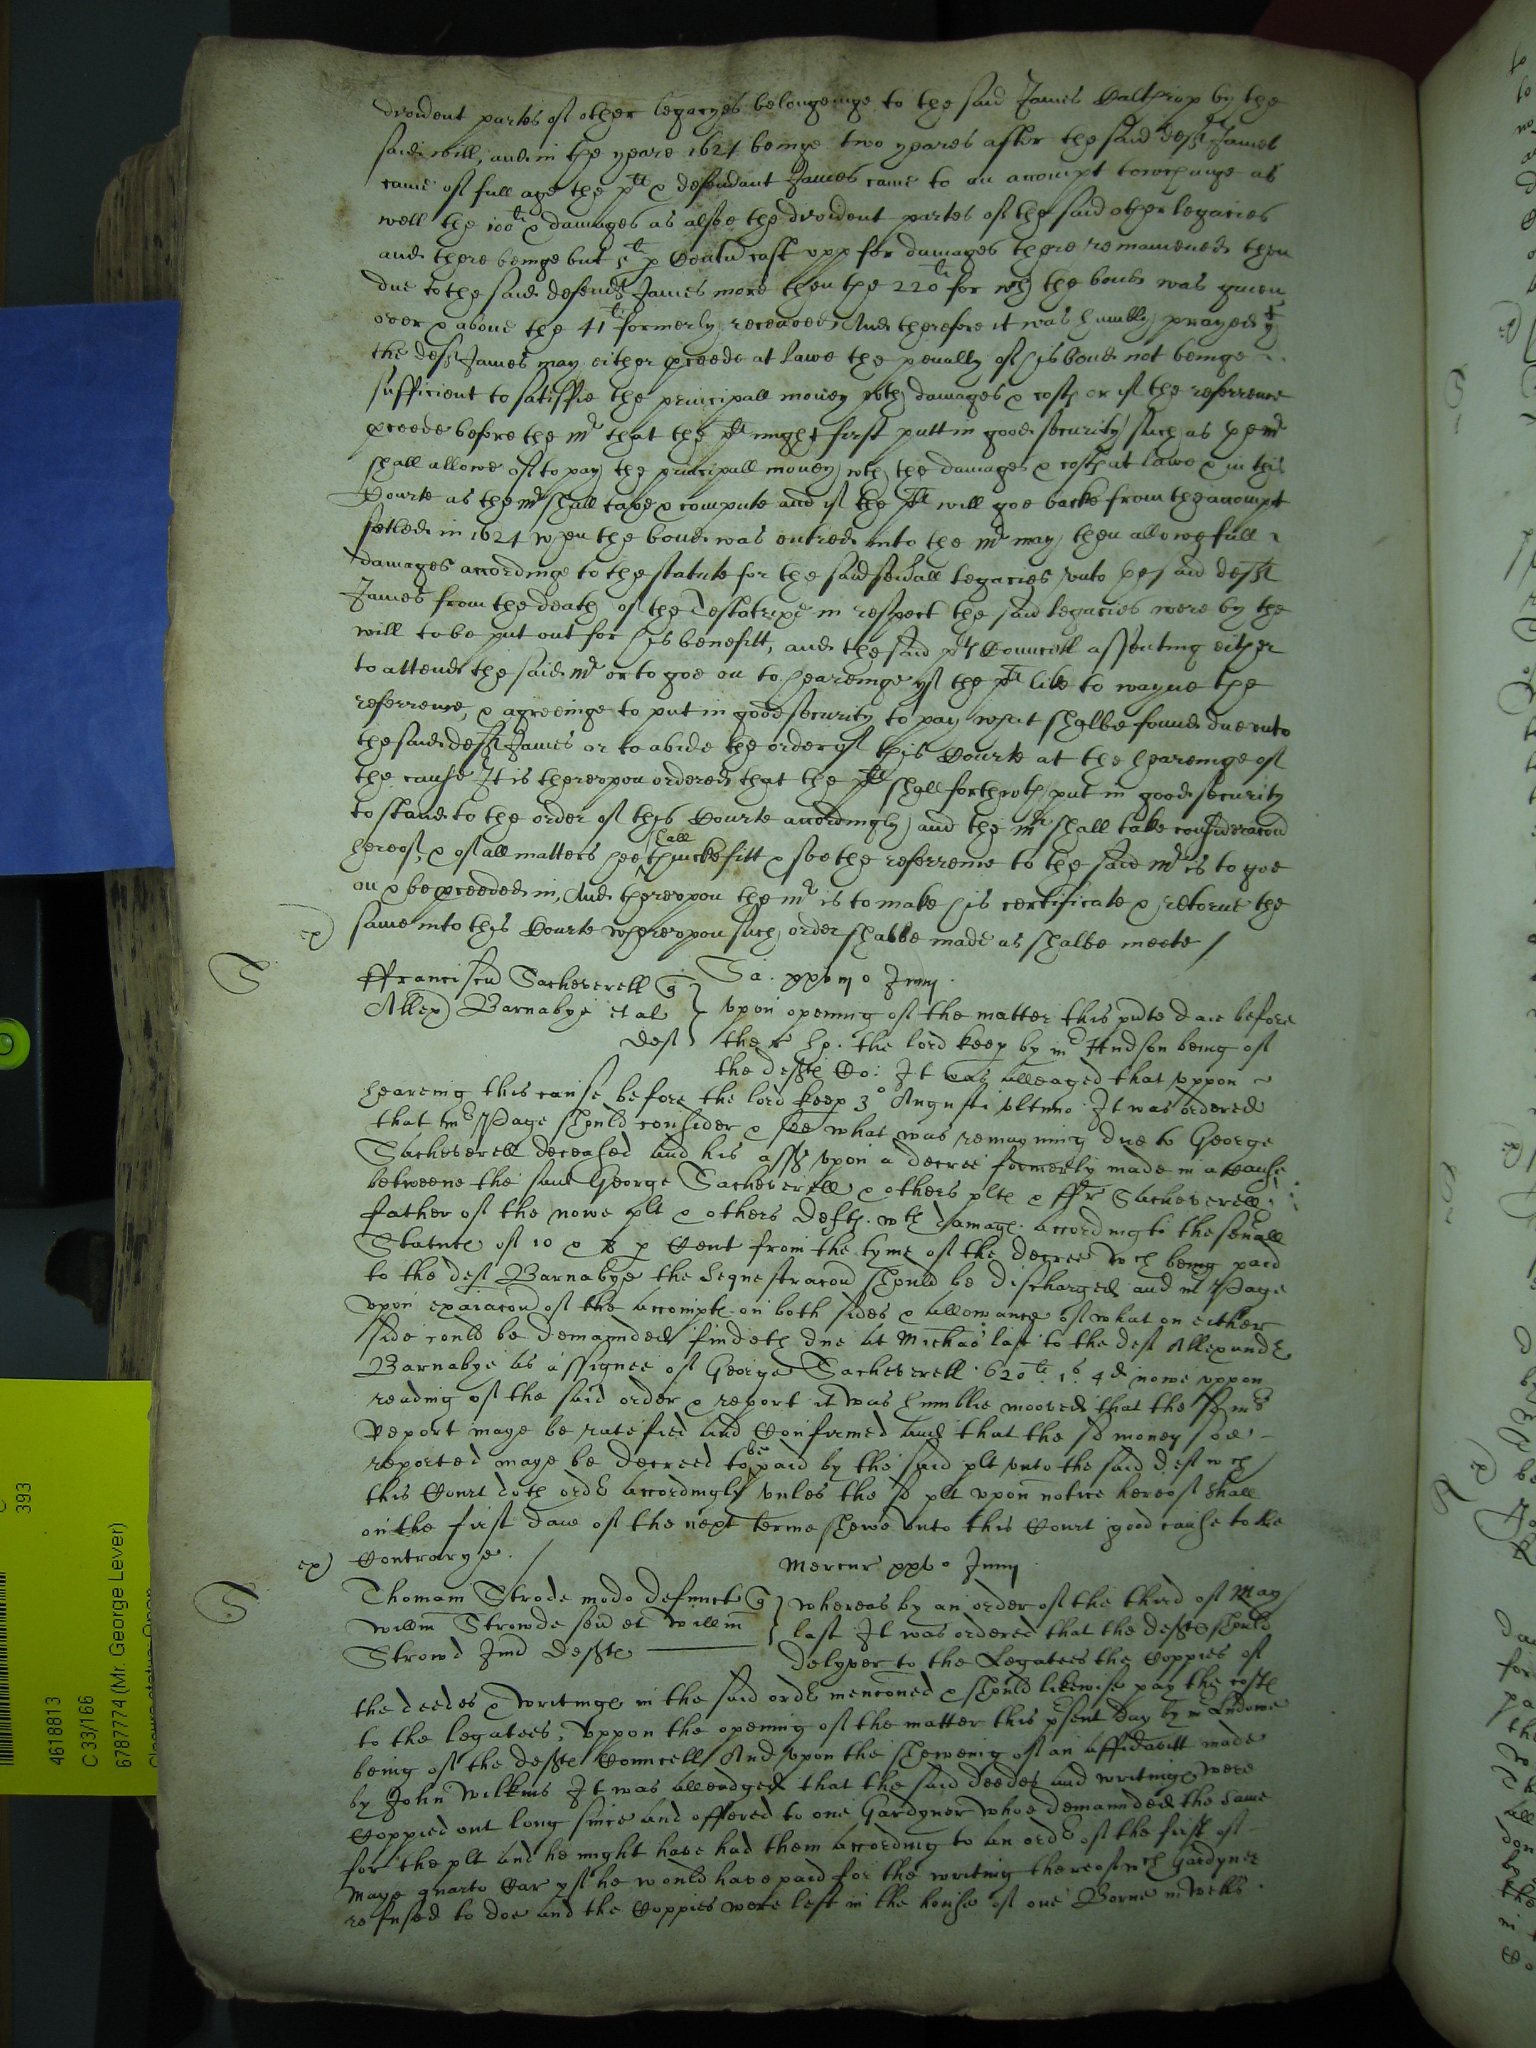 divident partes of other legacyes belongeinge to the said James Calthrop by the
said will, and in the yeare 1624 beinge two yeares after the said deft James
came of full age the plt & defendant James came to an accompt towchinge as
well the 100li & damages as alsoe the divident partes of the said other legacies
and there beinge but 5li p Centu cast upp for damages there remainened then
due to the said defendt James more then the 220li for wch the bond was given
over & above the 41li formerly receaved, And therefore it was humbly prayed yt
the deft James may either pceede at lawe the penalty of his bond not beinge
sufficient to satisfie the principall money wth damages & costs or if the referrence
pceede before the mr that the plt might first putt in good security such as the mr
shall allowe of to pay the principall money wth the damages & costs at lawe & in this
Courte as the mr shall taxe & compute and if the plt will goe backe from the accompt
setled in 1624 when the bond was entred into the mr may then allowe full
damages accordinge to the statute for the said sevall legacies unto the said deft
James from the death of the Testatrixe in respect the said legacies were by the
will to be put out for his benefitt, and the said plts Councell assenting either
to attend the said mr or to goe on to heareinge yf the plt like to wayve the
referrence, & agreeinge to put in good security to pay what shalbe found due unto
the said deft James or to abide the order of this Courte at the heareinge of
the cause It is thereupon ordered that the plt shall forthwth put in good security
to stand to the order of this Courte accordingly and the mr shall take consideracon
hereof, & of all matters hee shall thincke fitt & soe the referrence to the said mr is to goe
on & be pceeded in, And thereupon the mr is to make his certificate & retorne the
same into this Courte whereupon such order shalbe made as shalbe meete /
ex)
S
Franciscu Sacheverell q
Allexr Barnabye et al
deft
Sa. xxviijo Junij.
Upon opening of the matter this pnte daie before
the r: ho. the lord keep by mr Hudson being of
the defts Co: It was alleaged that uppon
heareing this cause before the lord keep 3o Augusti ultimo It was ordered
that mr Page should consider & see what was remayning due to George
Sacheverell deceased and his asss upon a decree formerly made in a cause
betweene the said George Sacheverell & others plts & ffr Sacheverell
father of the nowe plt & others defts. wth damags. according to the sevall
Statuts of 10 & 8 p Cent from the tyme of the decree wch being paid
to the deft Barnabye the sequestracon should be discharged and mr Page
upon exaiacon of the accompts on both sides & allowance of what on either
side could be demaunded findeth due at Michas last to the deft Allexandr
Barnabye as assignee of George Sacheverell 620li 1s 4d nowe uppon
reading of the said order & report it was humblie mooved that the sd mrs
Report maye be ratefied and Confirmed and that the sd money soe
reported maye be decreed to be paid by the said plt unto the said deft wch
this Court doth ordr accordingly unles the sd plt upon notice hereof shall
on the first daie of the next terme shewe unto this Court good cause to the
Contrarye.
ex)
Mercur xxvo Junij
S
Thomam Strode modo defunct q
Willm Strowde sen et Willm
Strowd Jun defts
Whereas by an order of the third of May
last It was ordered that the defts should
delyver to the Legatees the Coppies of
the deedes & writings in the said ordr menconed & should likewise pay the costs
to the legatees; uppon the opening of the matter this psent day by mr Ludowe
being of the defts Councell And upon the sheweing of an affidavitt made
by John Wilkins It was alleadged that the said deedes and writings were
Coppied out long since and offered to one Gardyner whoe demaunded the same
for the plt and he might have had them according to an ordr of the first of
Maye quarto Car yf he would have paid for the writing thereof wch Gardyner
refused to doe and the Coppies were left in the house of one Borne in Wells.
393
4618813
C 33/166
6787774 (Mr. George Lever)